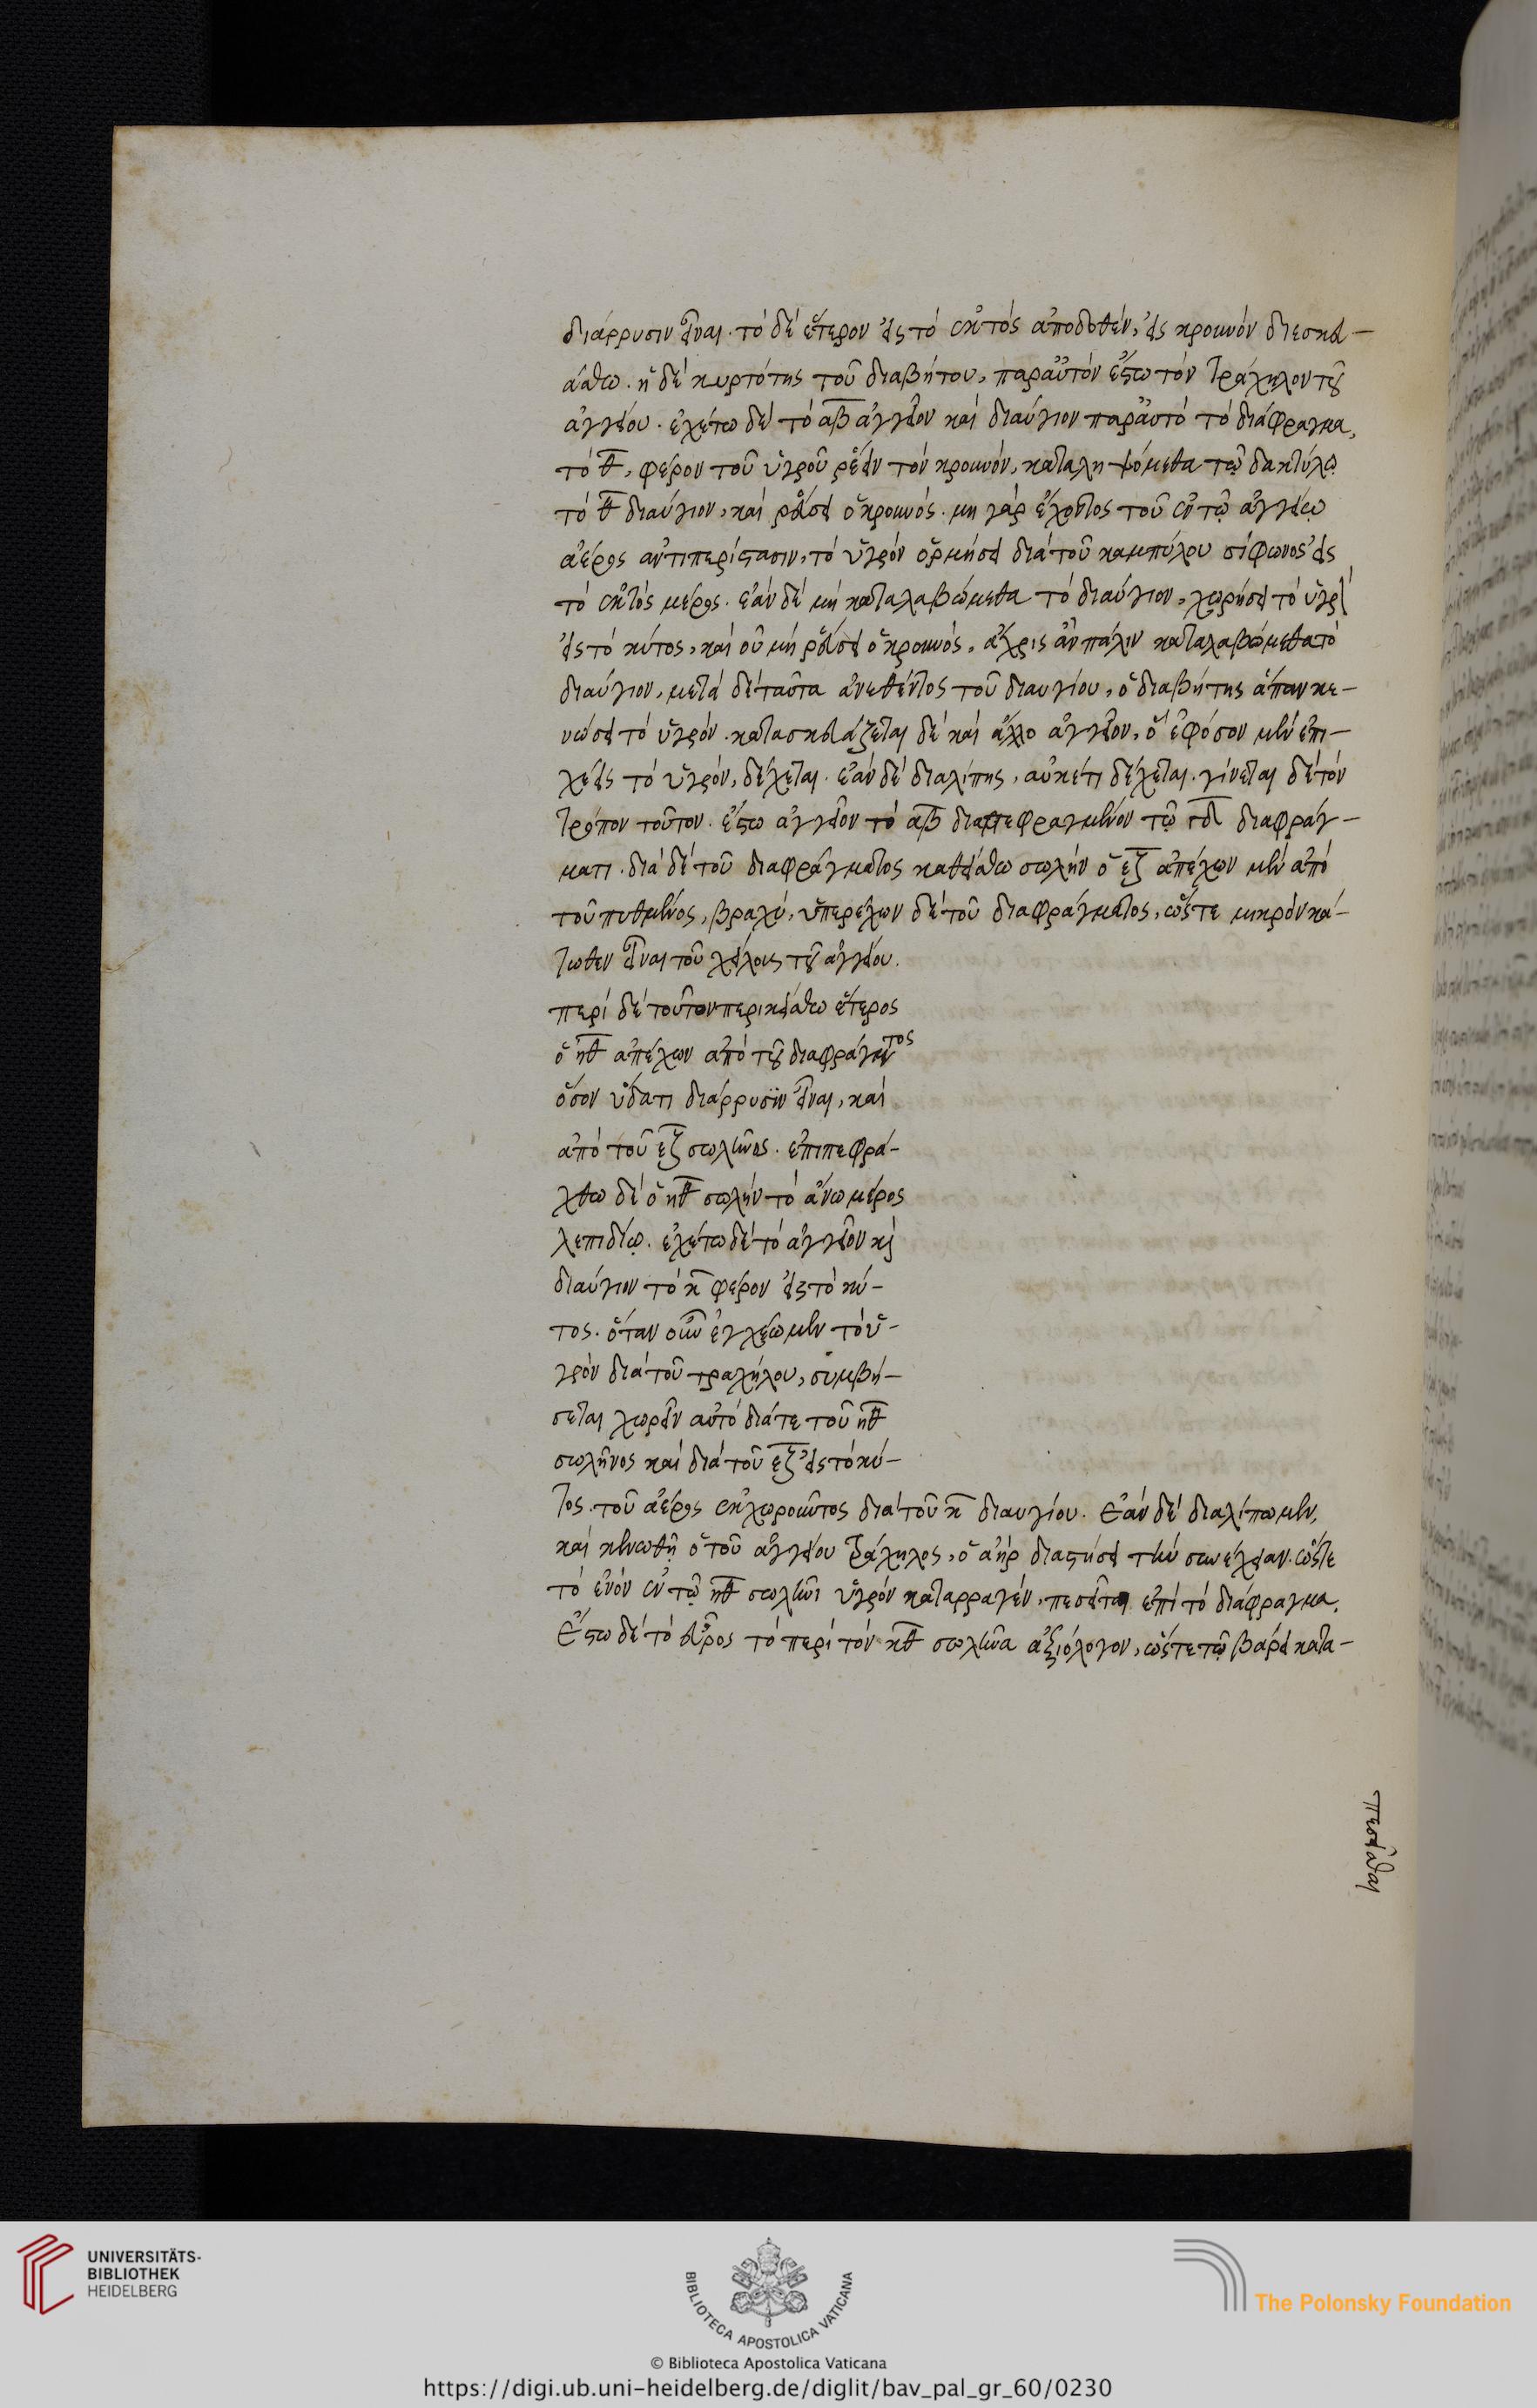 διάρρυσιν εἶναι. τὸ δὲ ἕτερον εἰς τὸ ἐκτὸς ἀποδοθὲν, εἰς κρουνὸν διεσκευ-
άσθω. ἡ δὲ κυρτότης τοῦ διαβήτου, παρ' αὐτὸν ἔστω τὸν τράχηλον τοῦ
ἀγγείου. ἐχέτω δὲ τὸ αβ ἀγγεῖον καὶ διαύγιον παρ' αὐτὸ τὸ διάφραγμα,
τὸ θ, φέρον τοῦ ὑγροῦ ῥεῖν τὸν κρουνὸν, καταληψόμεθα τῷ δακτύλῳ
τὸ θ διαύγιον, καὶ ῥεύσει ὁ κρουνός. μὴ γὰρ ἔχοντος τοῦ ἐν τῷ ἀγγείῳ
ἀέρος ἀντιπερίστασιν, τὸ ὑγρὸν ὁρμήσει διὰ τοῦ καμπύλου σίφωνος εἰς
τὸ ἐκτὸς μέρος. ἐὰν δὲ μὴ καταλαβώμεθα τὸ διαύγιον, χωρήσει τὸ ὑγρὸν
εἰς τὸ κύτος, καὶ οὐ μὴ ῥεύσει ὁ κρουνὸς, ἄχρις ἂν πάλιν καταλαβώμεθα τὸ
διαύγιον, μετὰ δὲ ταῦτα ἀνεθέντος τοῦ διαυγίου, ὁ διαβήτης ἅπαν κε-
νώσει τὸ ὑγρόν. κατασκευάζεται δὲ καὶ ἄλλο ἀγγεῖον, ὃ ἐφόσον μὲν ἐπι-
χέεις τὸ ὑγρὸν, δέχεται. ἐὰν δὲ διαλίπῃς, οὐκέτι δέχεται. γίνεται δὲ τὸν
τρόπον τοῦτον. ἔστω ἀγγεῖον τὸ αβ διαπεφραγμένον τῷ γδ διαφράγ-
ματι. διὰ δὲ τοῦ διαφράγματος καθείσθω σωλὴν ὁ εζ ἀπέχων μὲν ἀπὸ
τοῦ πυθμένος, βραχὺ, ὑπερέχων δὲ τοῦ διαφράγματος, ὥστε μικρὸν κά-
τωθεν εἶναι τοῦ χείλους τοῦ ἀγγείου.
περὶ δὲ τοῦτον περικείσθω ἕτερος
ὁ ηθ ἀπέχων ἀπὸ τοῦ διαφράγματος
ὅσον ὕδατι διάρρυσιν εἶναι, καὶ
ἀπὸ τοῦ εζ σωλῆνος. ἐπιπεφρά-
χθω δὲ ὁ ηθ σωλὴν τὸ ἄνω μέρος
λεπιδίῳ. ἐχέτω δὲ τὸ ἀγγεῖον καὶ
διαύγιον τὸ κ φέρον εἰς τὸ κύ-
τος. ὅταν οὖν ἐγχέωμεν τὸ ὑ-
γρὸν διὰ τοῦ τραχήλου, συμβή-
σεται χωρεῖν αὐτὸ διά τε τοῦ ηθ
σωλῆνος καὶ διὰ τοῦ εζ εἰς τὸ κύ-
τος. τοῦ ἀέρος ἐκχωροῦντος διὰ τοῦ κ διαυγίου. Ἐὰν δὲ διαλίπωμεν,
καὶ κενωθῇ ὁ τοῦ ἀγγείου τράχηλος, ὁ ἀὴρ διαστήσει τὴν συνέχειαν. ὥστε
τὸ ἐνὸν ἐν τῷ ηθ σωλῆνι ὑγρὸν καταρραγὲν, πεσεῖται ἐπὶ τὸ διάφραγμα.
Ἔστω δὲ τὸ εὖρος τὸ περὶ τὸν ηθ σωλῆνα ἀξιόλογον, ὥστε τῷ βάρει κατα-
πεσεῖσθαι
UNIVERSITÄTS-
BIBLIOTHEK
HEIDELBERG
BIBLIOTECA APOSTOLICA VATICANA
The Polonsky Foundation
© Biblioteca Apostolica Vaticana
https://digi.ub.uni-heidelberg.de/diglit/bav_pal_gr_60/0230